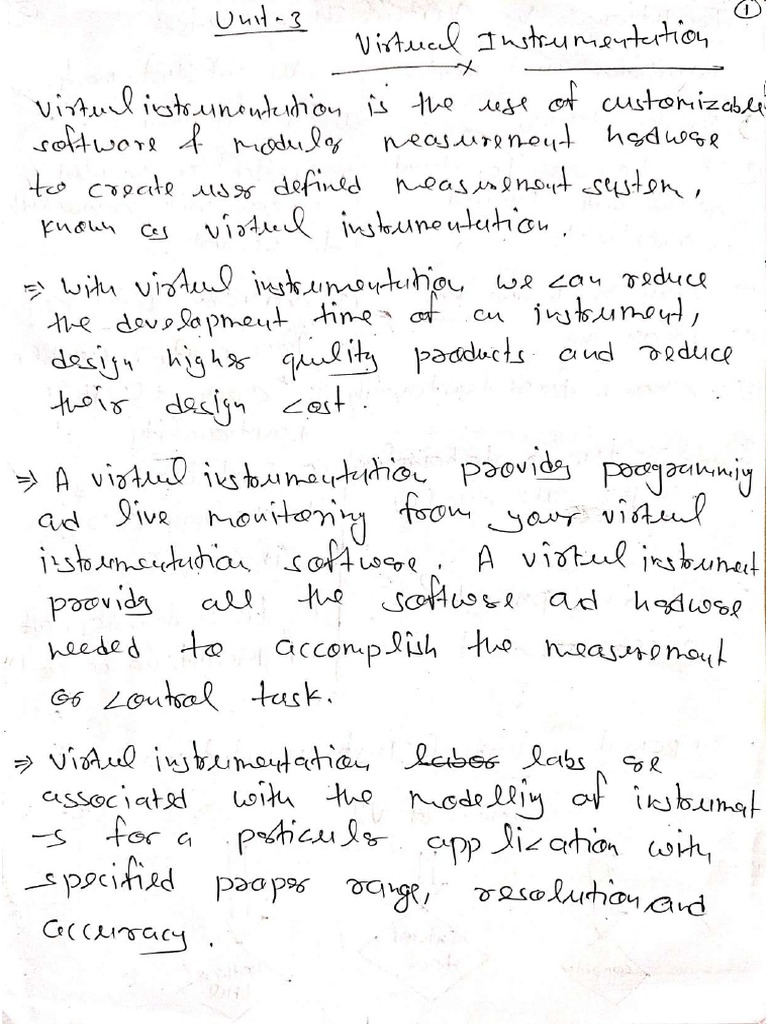 Unit-3
1
Virtual Instrumentation
Virtual instrumentation is the use of customizable
software & modular measurement hardware
to create user defined measurement system,
known as virtual instrumentation.
⇒ With virtual instrumentation we can reduce
the development time of an instrument,
design higher quality products and reduce
their design cost.
⇒ A virtual instrumentation provides programming
and live monitoring from your virtual
instrumentation software. A virtual instrument
provides all the software and hardware
needed to accomplish the measurement
or control task.
⇒ Virtual instrumentation labor labs are
associated with the modelling of instrument
-s for a particular application with
specified proper range, resolution and
accuracy.